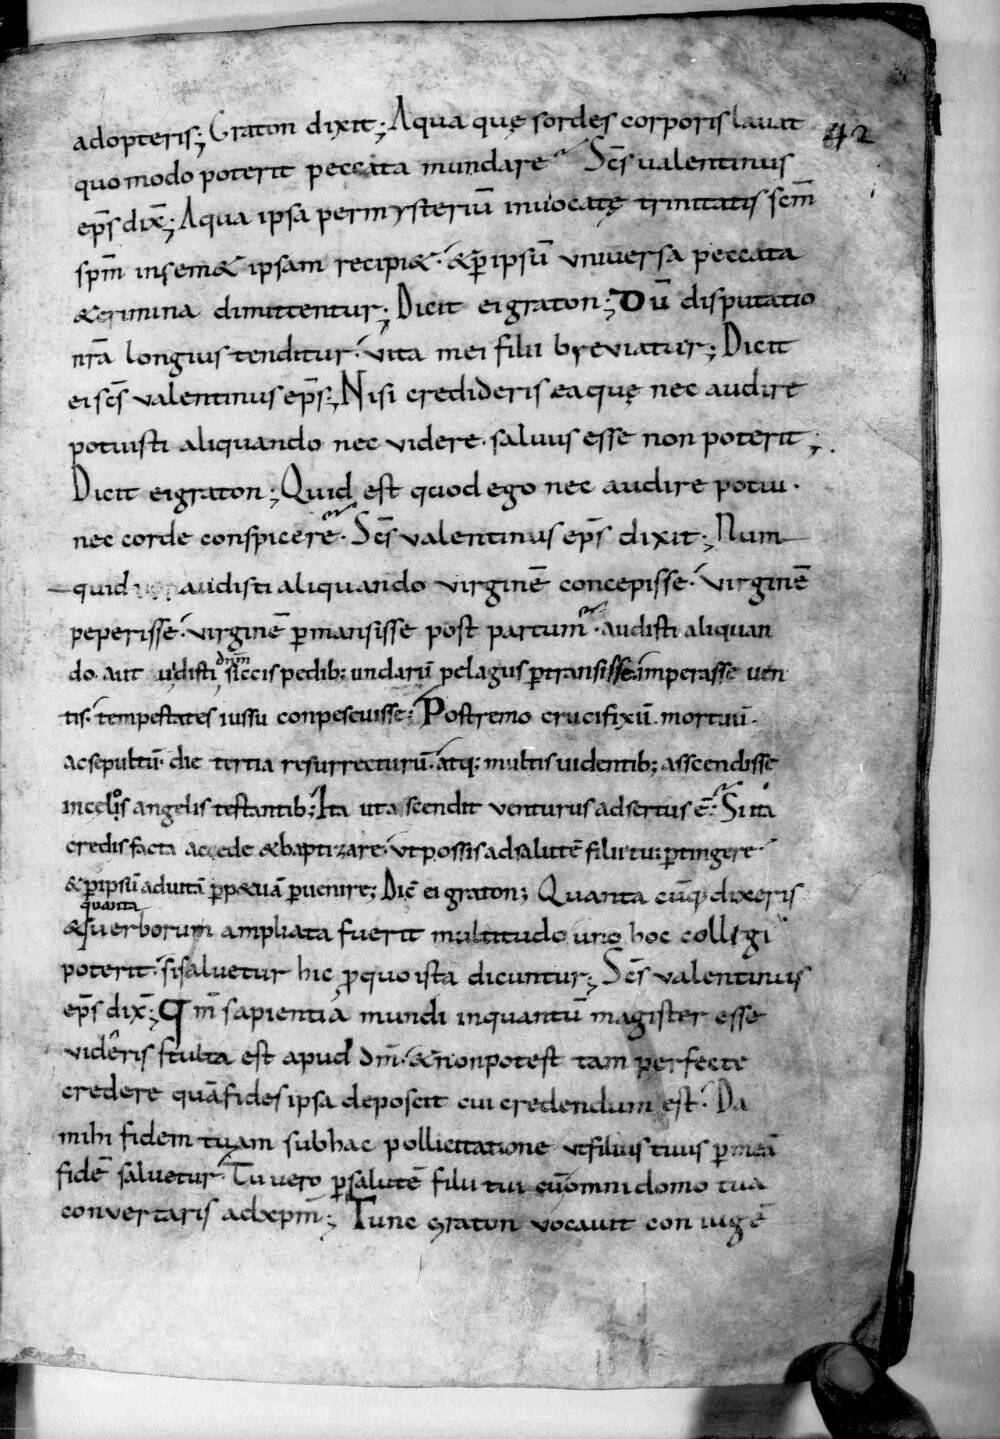 adopteris; Craton dixit; Aqua quę sordes corporis lauat
42
quomodo poterit peccata mundare Scs̄ ualentinus
ep̄s dix̄; Aqua ipsa per mysteriū inuocatę trinitatis scm̄
spm̄ in sem& ipsam recipi&· & p̄ ipsū uniuersa peccata
& crimina dimittentur; Dicit ei graton; Dū disputatio
nr̄a longius tenditur· uita mei filii breuiatur; Dicit
ei scs̄ ualentinus ep̄s; Nisi credideris ea quę nec audire
potuisti aliquando nec uidere· saluus esse non poterit;
Dicit ei graton; Quid est quod ego nec audire potui·
nec corde conspicere· Scs̄ ualentinus ep̄s dixit; Num
quid audisti aliquando uirginē concepisse· uirginē
peperisse· uirginē p̄mansisse post partum· audisti aliquan
do· aut uidisti dn̄m siccis pedib; undarū pelagus p̄transisse· imperasse uen
tis· tempestates iussu conpescuisse· Postremo crucifixū· mortuū·
ac sepultū· die tertia resurrecturū· atq; multis uidentib; asscendisse
in celos angelis testantib; Ita ut ascendit uenturus adsertus ē· Si ita
credis facta accede & baptizare· ut possis ad salutē filii tui p̄tingere·
& p̄ ipsū ad uitā p̄p&uā p̄uenire; Dic̄ ei graton; Quanta cūq· dixeris
quanta
& uerborum ampliata fuerit multitudo uno hoc colligi
poterit· si saluetur hic p̄ quo ista dicuntur; Scs̄ ualentinus
ep̄s dix̄; Qm̄ sapientia mundi in quantū magister esse
uideris stulta est apud dm̄· & non potest tam perfecte
credere quā fides ipsa deposcit cui credendum est· Da
mihi fidem tuam sub hac pollicitatione ut filius tuus p̄ meā
fidē saluetur· Tu uero p̄ salutē filii tui cū omni domo tua
conuertaris ad xpm̄; Tunc graton uocauit coniugē